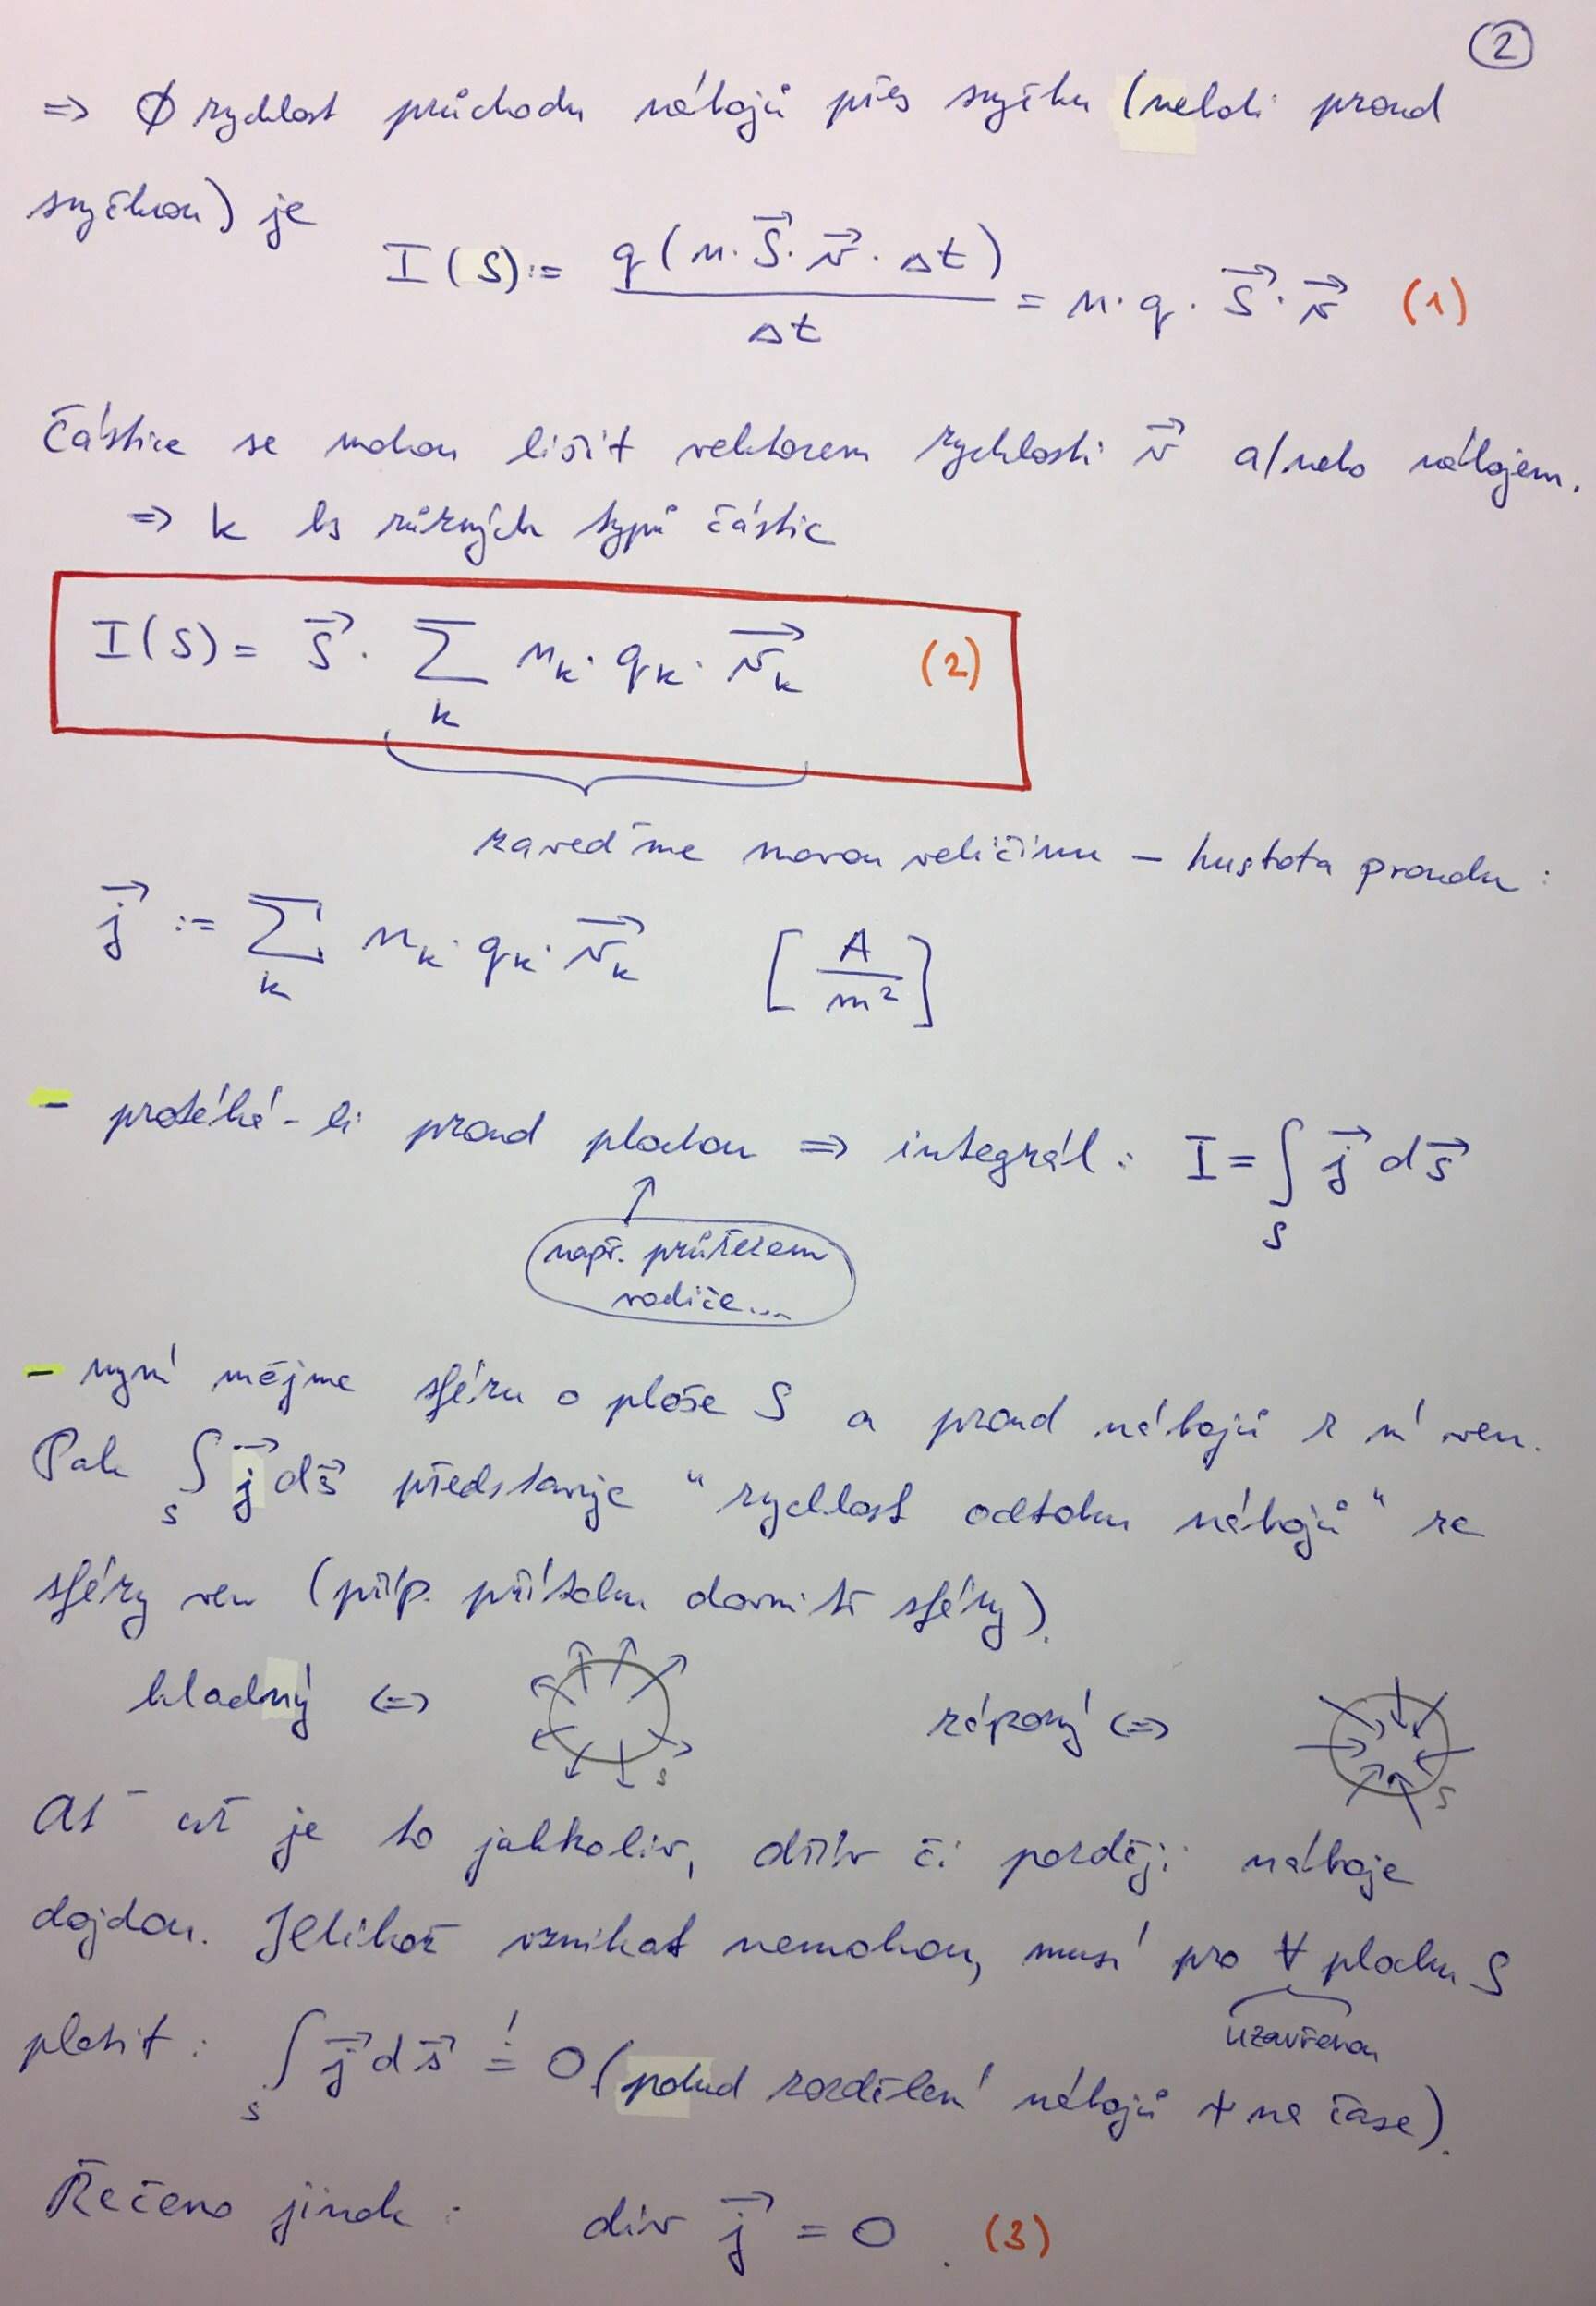 2
=> Ø rychlost průchodu nábojů přes smyčku (neboli proud
smyčkou) je
I(S) := q(n·S⃗·v⃗·Δt) / Δt = n·q·S⃗·v⃗ (1)
Částice se mohou lišit vektorem rychlosti v⃗ a/nebo nábojem.
=> k ks různých typů částic
I(S) = S⃗ · ∑_k n_k · q_k · v⃗_k (2)
zaveďme novou veličinu – hustota proudu:
j⃗ := ∑_k n_k · q_k · v⃗_k [A/m²]
– protéká-li proud plochou => integrál: I = ∫_S j⃗ ds⃗
např. průřezem
vodiče...
– nyní mějme sféru o ploše S a proud nábojů z ní ven.
Pak ∫_S j⃗ ds⃗ představuje "rychlost odtoku nábojů" ze
sféry ven (příp. přítoku dovnitř sféry).
kladný <=> S záporný <=> S
Ať už je to jakkoliv, dřív či později náboje
dojdou. Jelikož vznikat nemohou, musí pro ∀ plochu S
uzavřenou
platit: ∫_S j⃗ ds⃗ =! 0 (pokud rozdělení nábojů ≁ na čase).
Řečeno jinak: div j⃗ = 0. (3)